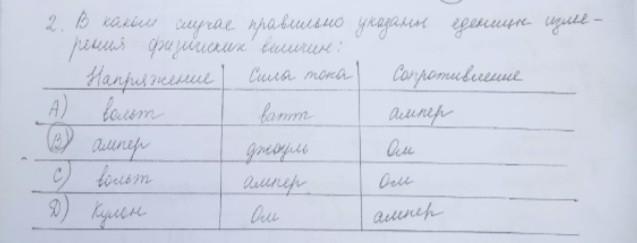 2. В каком случае правильно указаны еденицы изме-
рения физических величин:
Напряжение Сила тока Сопротивление
А) вольт ватт ампер
В) ампер джоуль Ом
С) вольт ампер Ом
D) Кулон Ом ампер